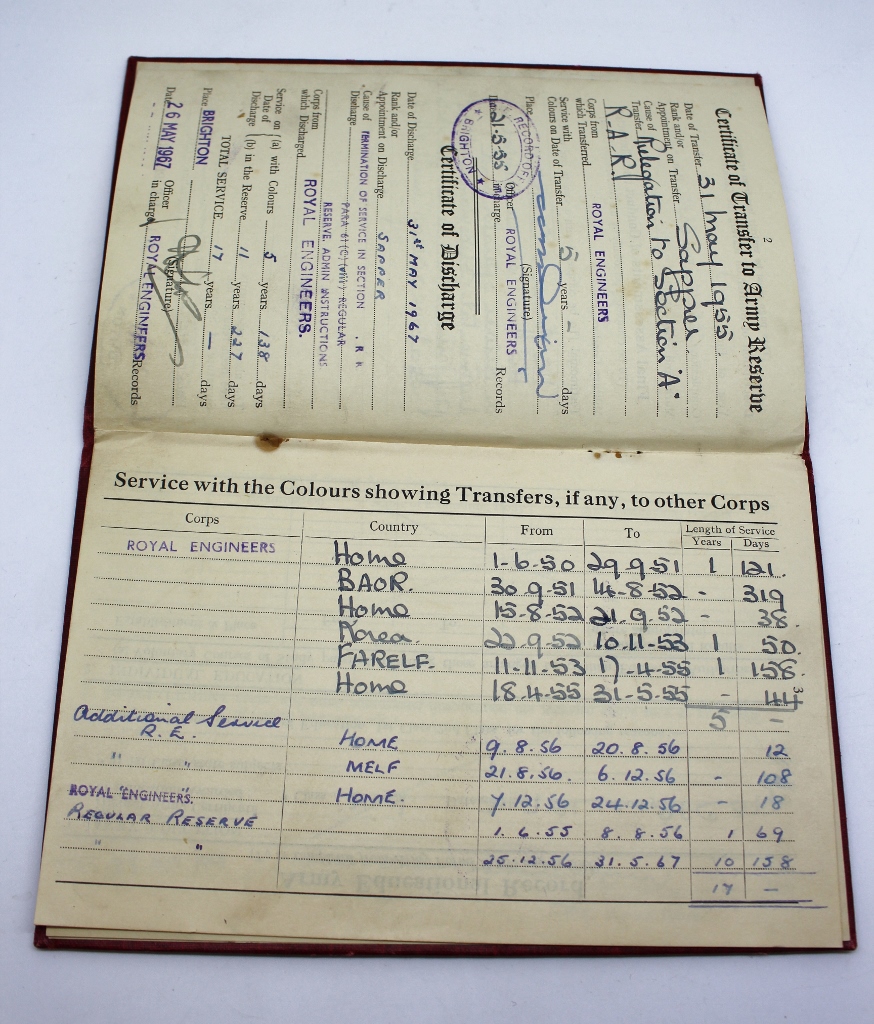 2
Certificate of Transfer to Army Reserve
Date of Transfer 31 May 1955
Rank and/or
Appointment on Transfer Sapper
Cause of Relegation to Section 'A'
Transfer
R.A.R.
Corps from
which Transferred ROYAL ENGINEERS
Service with
Colours on Date of Transfer 5 years - days
Place
(Signature)
Date 31-5-55 Officer in charge ROYAL ENGINEERS Records
RECORD OF
BRIGHTON
Certificate of Discharge
Date of Discharge 31st MAY 1967
Rank and/or
Appointment on Discharge SAPPER
Cause of TERMINATION OF SERVICE IN SECTION
Discharge PARA 61(C)(viii) REGULAR
RESERVE. ADMIN INSTRUCTIONS
Corps from
which Discharged ROYAL ENGINEERS.
Service on (a) with Colours 5 years 138 days
Date of
Discharge (b) in the Reserve 11 years 227 days
TOTAL SERVICE 17 years — days
Place BRIGHTON
(Signature)
Date 26 MAY 1967 Officer in charge ROYAL ENGINEERS Records
Service with the Colours showing Transfers, if any, to other Corps
Corps Country From To Length of Service
Years Days
ROYAL ENGINEERS Home 1-6-50 29-9-51 1 121.
BAOR. 30-9-51 14-8-52 - 319
Home 15-8-52 21-9-52 - 38.
Korea 22-9-52 10-11-53 1 50.
FARELF. 11-11-53 17-4-55 1 158.
Home 18-4-55 31-5-55 - 44
3
5 -
Additional Service
R.E. HOME 9.8.56 20.8.56 12
" " MELF 21.8.56. 6.12.56 - 108
ROYAL ENGINEERS. HOME. 7.12.56 24.12.56 - 18
REGULAR RESERVE 1.6.55 8.8.56 1 69
" " 25.12.56 31.5.67 10 158
17 -